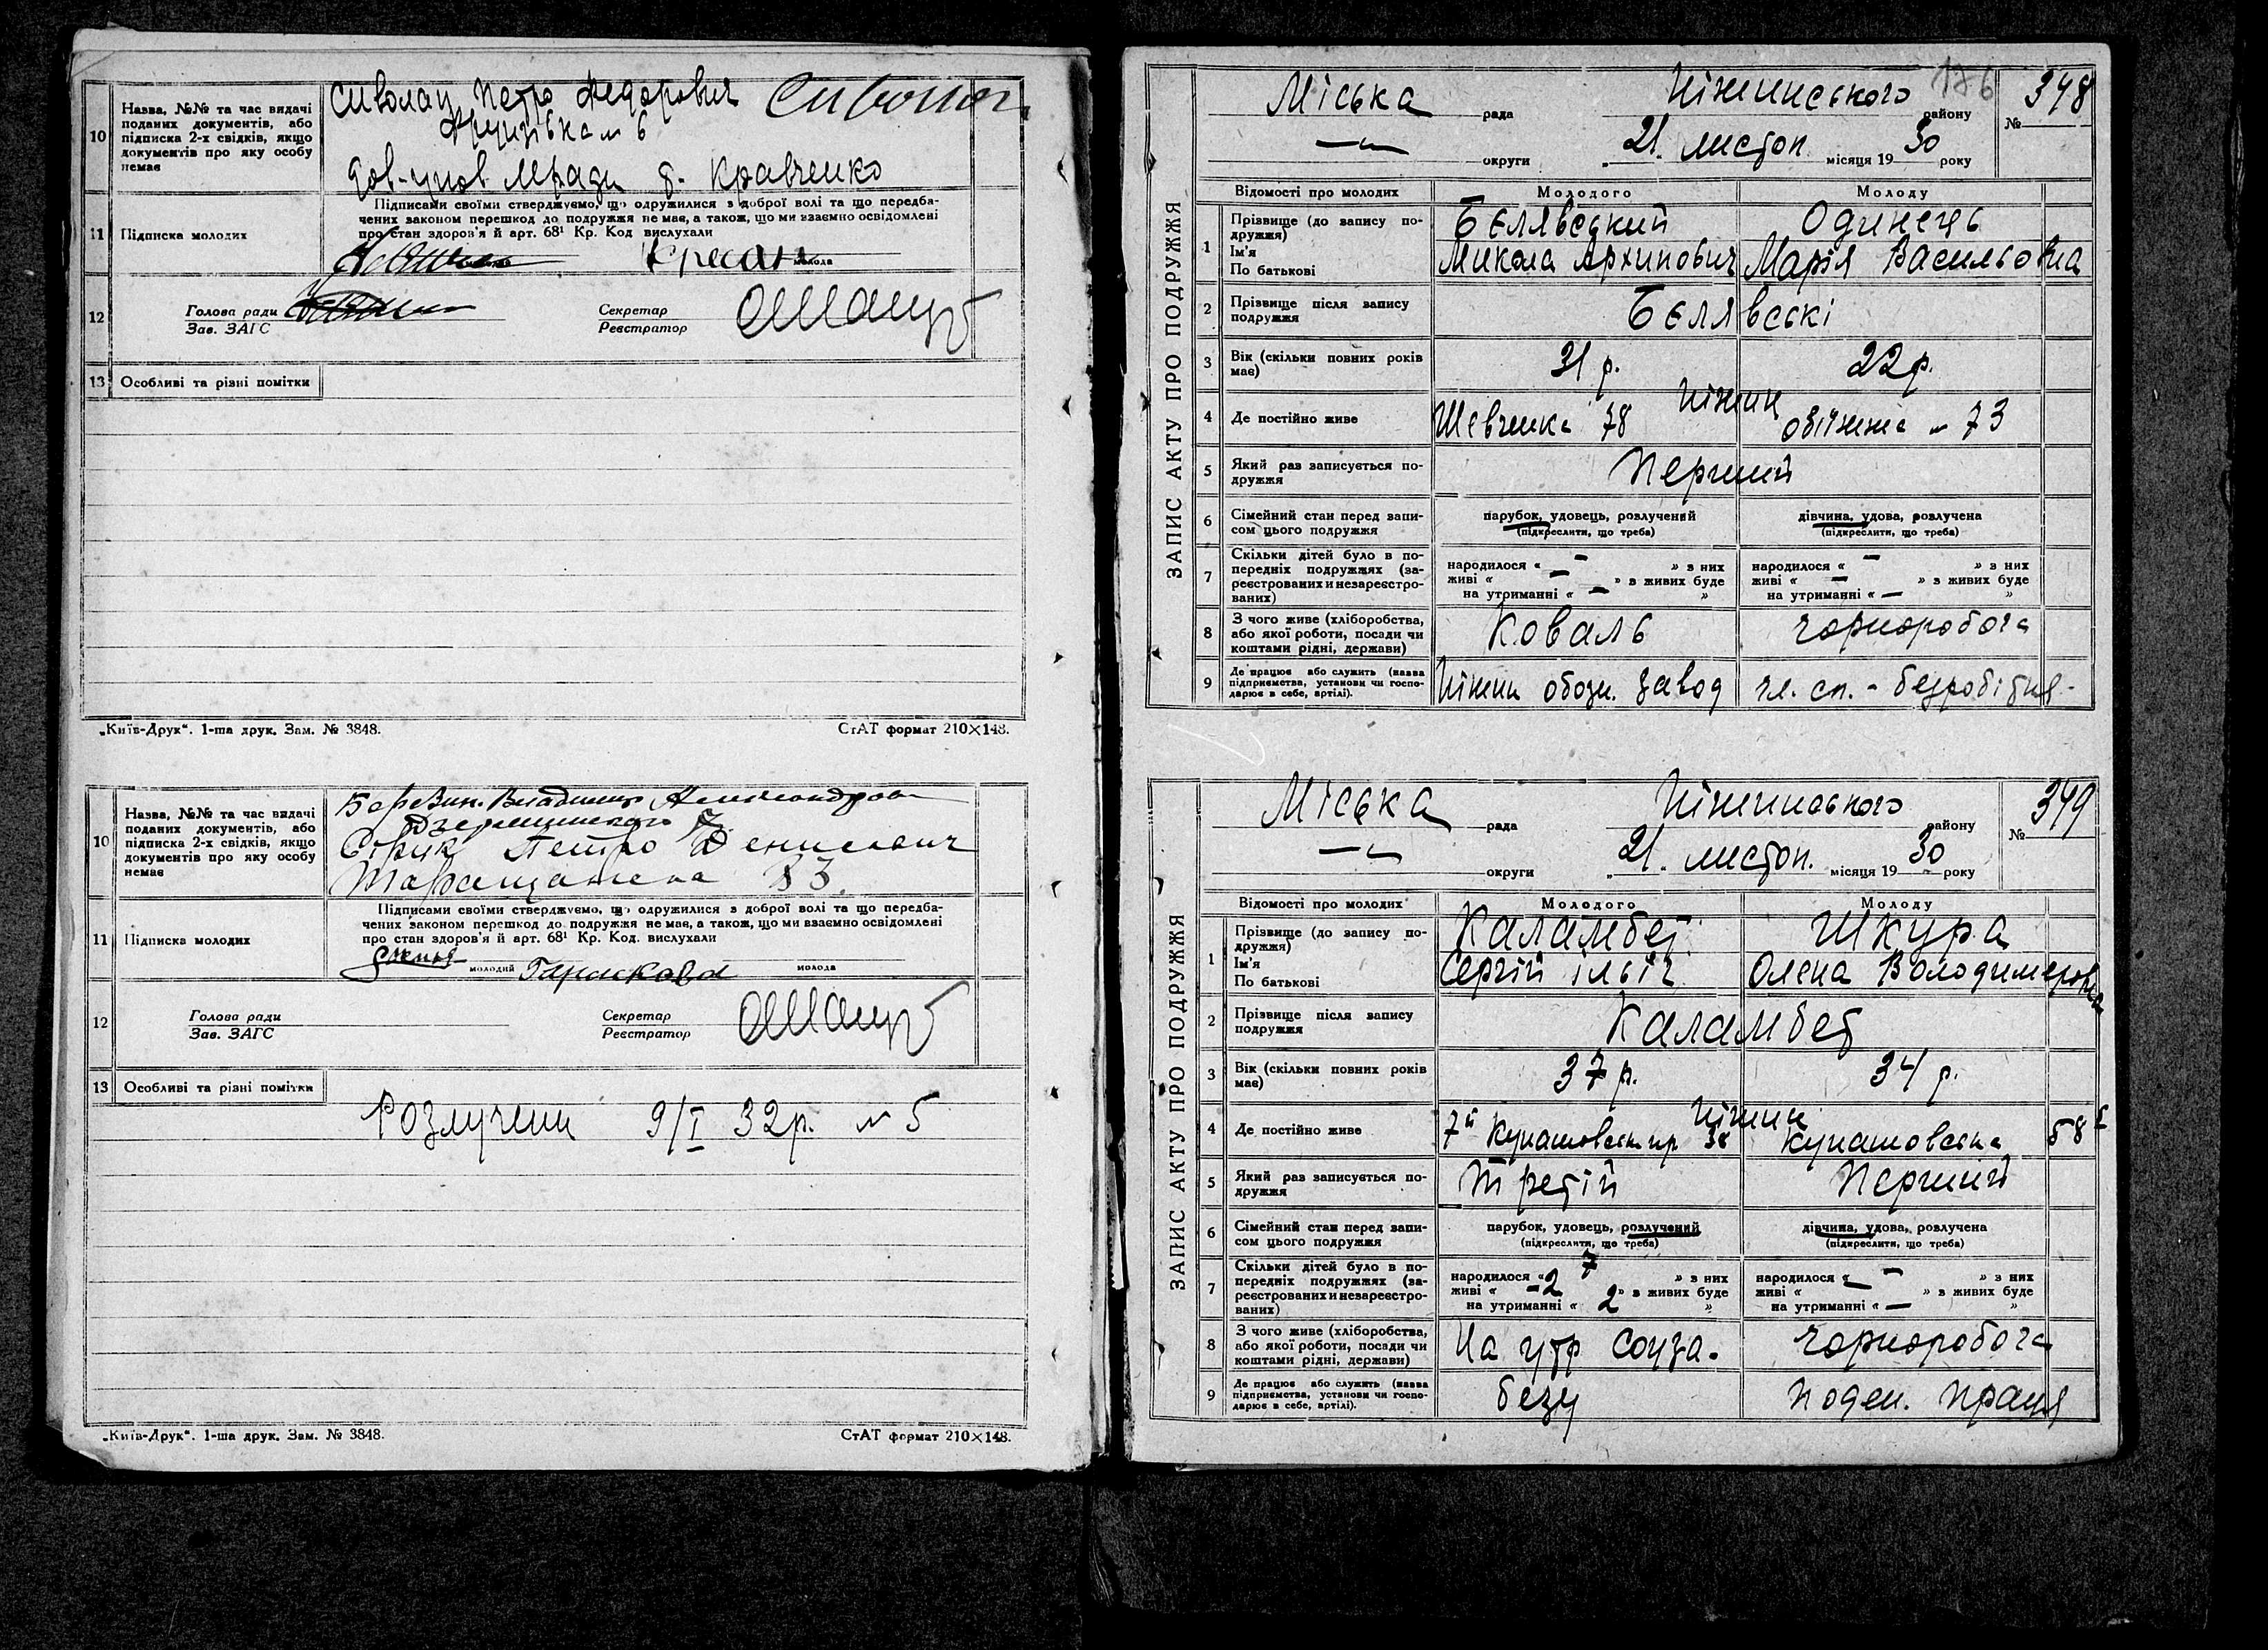 10 Назва, №№ та час видачі
поданих документів, або
підписка 2-х свідків, якщо
документів про яку особу
немає
Сиволап Петро Федорович
6
Кравченко
11 Підписка молодих
Підписами своїми стверджуємо, що одружилися з доброї волі та що передба-
чених законом перешкод до подружжя не має, а також, що ми взаємно освідомлені
про стан здоров'я й арт. 68¹ Кр. Код вислухали
молода
12 Голова ради
Зав. ЗАГС
Секретар
Реєстратор
13 Особливі та різні помітки
„Київ-Друк“. 1-ша друк. Зам. № 3848.
СтАТ формат 210×148.
10 Назва, №№ та час видачі
поданих документів, або
підписка 2-х свідків, якщо
документів про яку особу
немає
Владимир
Петро Денисович
11 Підписка молодих
Підписами своїми стверджуємо, що одружилися з доброї волі та що передба-
чених законом перешкод до подружжя не має, а також, що ми взаємно освідомлені
про стан здоров'я й арт. 68¹ Кр. Код. вислухали
молодий
молода
12 Голова ради
Зав. ЗАГС
Секретар
Реєстратор
13 Особливі та різні помітки
Розлучені 9/I 32р. № 5
„Київ-Друк“. 1-ша друк. Зам. № 3848.
СтАТ формат 210×148.
176
ЗАПИС АКТУ ПРО ПОДРУЖЖЯ
Міська рада Ніжинського району № 348
округи „21. листоп. місяця 1930 року
Відомості про молодих
Молодого
Молоду
1 Прізвище (до запису по-
дружжя)
Ім'я
По батькові
Бєлявський
Микола Архипович
Одинець
Марія Васильовна
2 Прізвище після запису
подружжя
Бєлявські
3 Вік (скільки повних років
має)
31 р.
22 р.
4 Де постійно живе
Ніжин
Шевченка 78
№ 73
5 Який раз записується по-
дружжя
Перший
6 Сімейний стан перед запи-
сом цього подружжя
парубок, удовець, розлучений
(підкреслити, що треба)
дівчина, удова, розлучена
(підкреслити, що треба)
7 Скільки дітей було в по-
передніх подружжях (за-
реєстрованих и незареєстро-
ваних)
народилося « — » з них
живі « — » в живих буде
на утриманні « — »
народилося « — » з них
живі « — » в живих буде
на утриманні « — »
8 З чого живе (хліборобства,
або якої роботи, посади чи
коштами рідні, держави)
Коваль
чорноробоча
9 Де працює або служить (назва
підприємства, установи чи госпо-
дарює в себе, артілі).
Ніжин обозн. завод
чл. сп. - безробітня -
ЗАПИС АКТУ ПРО ПОДРУЖЖЯ
Міська рада Ніжинського району № 349
округи „21. листоп. місяця 1930 року
Відомості про молодих
Молодого
Молоду
1 Прізвище (до запису по-
дружжя)
Ім'я
По батькові
Каламбет
Сергій Ільіч
Шкура
Олена Володимеровна
2 Прізвище після запису
подружжя
Каламбет
3 Вік (скільки повних років
має)
37 р.
34 р.
4 Де постійно живе
Ніжин
7й Кунашовськ пр. 38
Кунашовська 58
5 Який раз записується по-
дружжя
Третій
Перший
6 Сімейний стан перед запи-
сом цього подружжя
парубок, удовець, розлучений
(підкреслити, що треба)
дівчина, удова, розлучена
(підкреслити, що треба)
7 Скільки дітей було в по-
передніх подружжях (за-
реєстрованих и незареєстро-
ваних)
народилося « 7 » з них
живі « 2 » в живих буде
на утриманні « 2 »
народилося « — » з них
живі « » в живих буде
на утриманні « — »
8 З чого живе (хліборобства,
або якої роботи, посади чи
коштами рідні, держави)
На утр Союза.
чорноробоча
9 Де працює або служить (назва
підприємства, установи чи госпо-
дарює в себе, артілі).
поден. праця